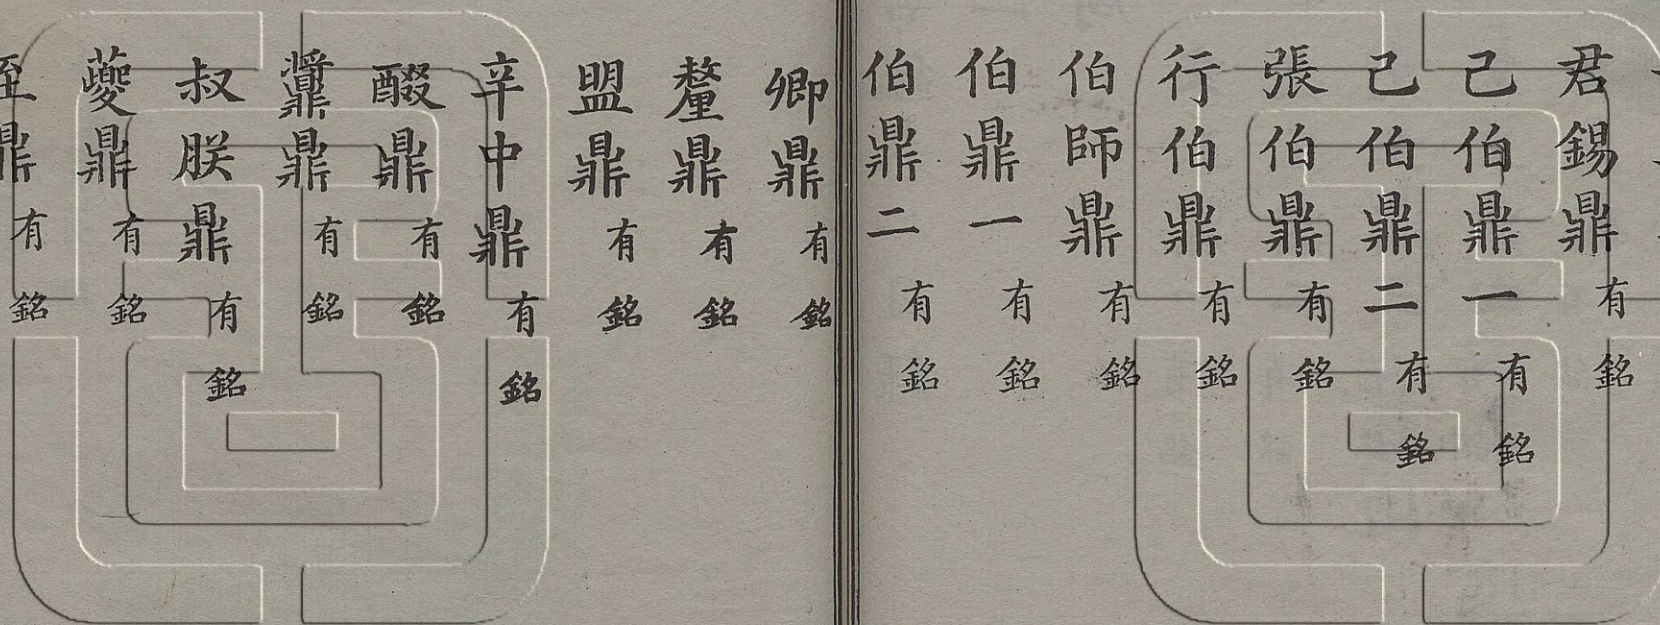 君錫鼎有銘
己伯鼎一有銘
己伯鼎二有銘
張伯鼎有銘
行伯鼎有銘
伯師鼎有銘
伯鼎一有銘
伯鼎二有銘
卿鼎有銘
釐鼎有銘
盟鼎有銘
辛中鼎有銘
醊鼎有銘
鼎有銘
叔朕鼎有銘
鼎有銘
鼎有銘